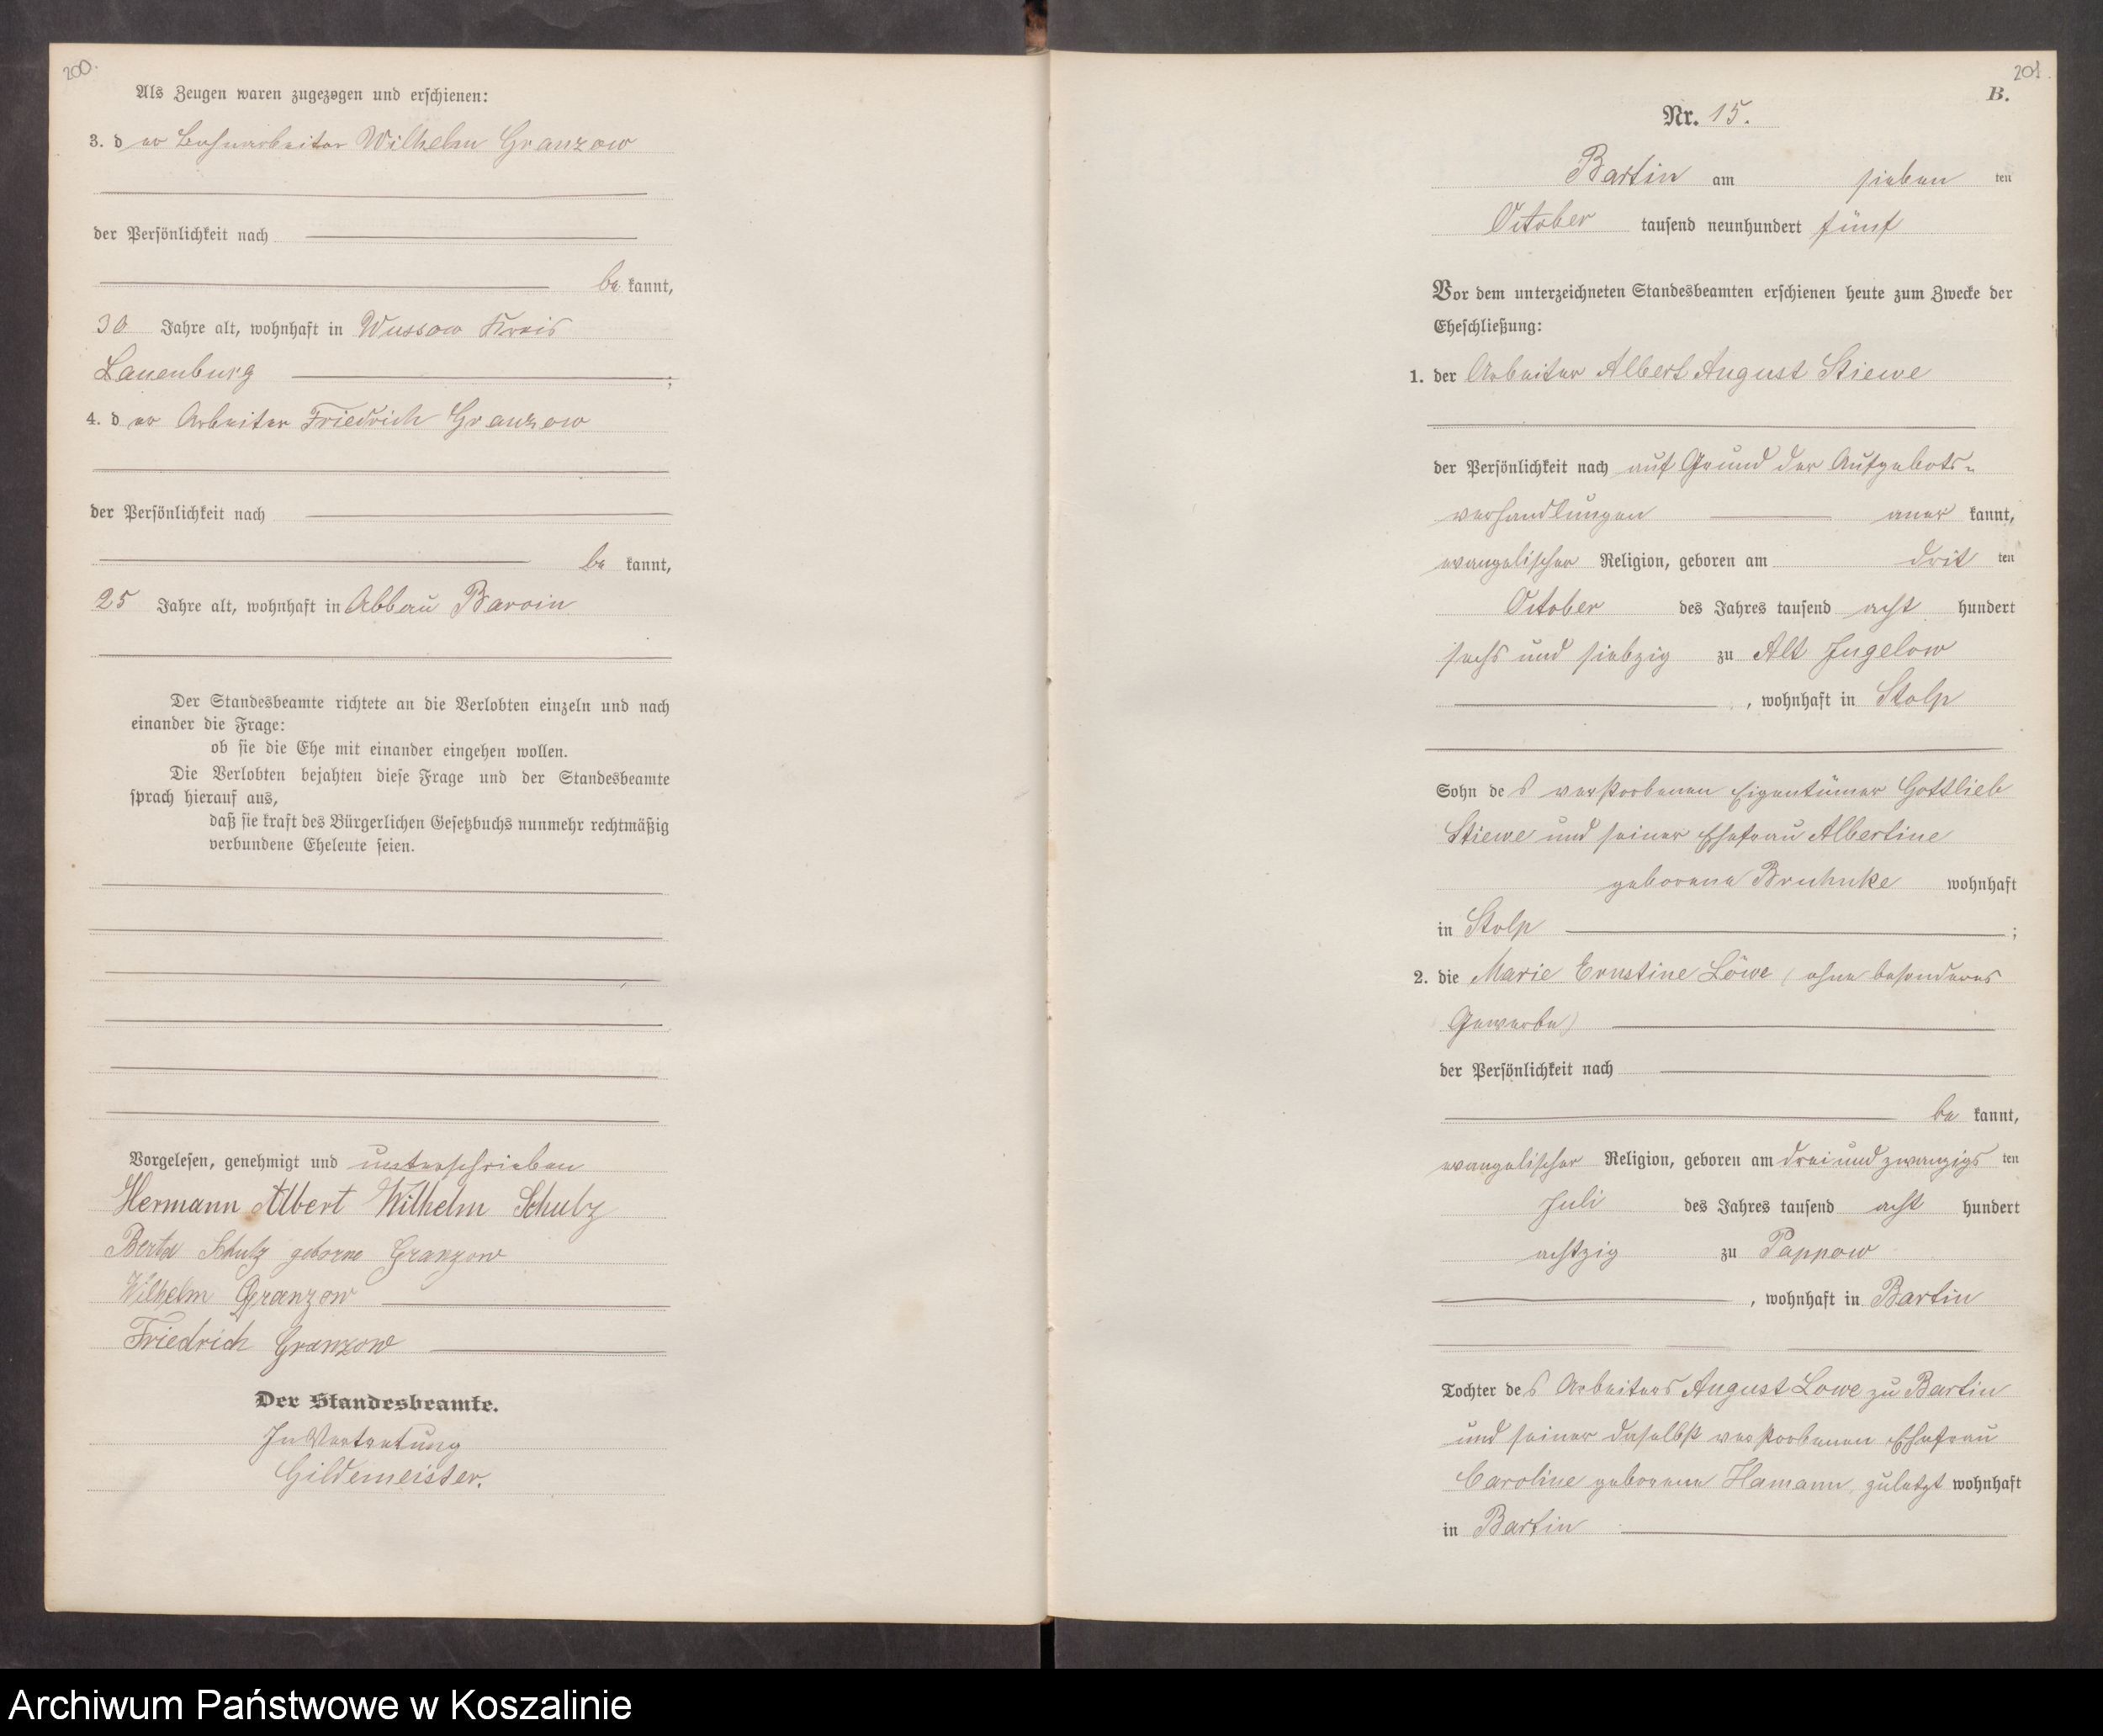 200.
Als Zeugen waren zugezogen und erschienen:
3. der Bahnarbeiter Wilhelm Granzow
der Persönlichkeit nach
bekannt,
30 Jahre alt, wohnhaft in Wussow Kreis
Lauenburg ;
4. der Arbeiter Friedrich Granzow
der Persönlichkeit nach
bekannt,
25 Jahre alt, wohnhaft in Abbau Barvin
Der Standesbeamte richtete an die Verlobten einzeln und nach
einander die Frage:
ob sie die Ehe mit einander eingehen wollen.
Die Verlobten bejahten diese Frage und der Standesbeamte
sprach hierauf aus,
daß sie kraft des Bürgerlichen Gesetzbuchs nunmehr rechtmäßig
verbundene Eheleute seien.
Vorgelesen, genehmigt und unterschrieben
Hermann Albert Wilhelm Schulz
Berta Schulz geborne Granzow
Wilhelm Granzow
Friedrich Granzow
Der Standesbeamte.
In Vertretung
Gildemeister.
201.
B.
Nr. 15.
Bartin am sieben ten
October tausend neunhundert fünf
Vor dem unterzeichneten Standesbeamten erschienen heute zum Zwecke der
Eheschließung:
1. der Arbeiter Albert August Stiewe
der Persönlichkeit nach auf Grund der Aufgebots-
verhandlungen anerkannt,
evangelischer Religion, geboren am dritten
October des Jahres tausend acht hundert
sechs und siebzig zu Alt Jugelow
, wohnhaft in Stolp
Sohn des verstorbenen Eigentümer Gottlieb
Stiewe und seiner Ehefrau Albertine
geborene Bruhnke wohnhaft
in Stolp ;
2. die Marie Ernstine Löwe (ohne besonderes
Gewerbe)
der Persönlichkeit nach
bekannt,
evangelischer Religion, geboren am dreiundzwanzigsten
Juli des Jahres tausend acht hundert
achtzig zu Pappow
, wohnhaft in Bartin
Tochter des Arbeiters August Lowe zu Bartin
und seiner daselbst verstorbenen Ehefrau
Caroline geborene Hamann, zuletzt wohnhaft
in Bartin
Archiwum Państwowe w Koszalinie